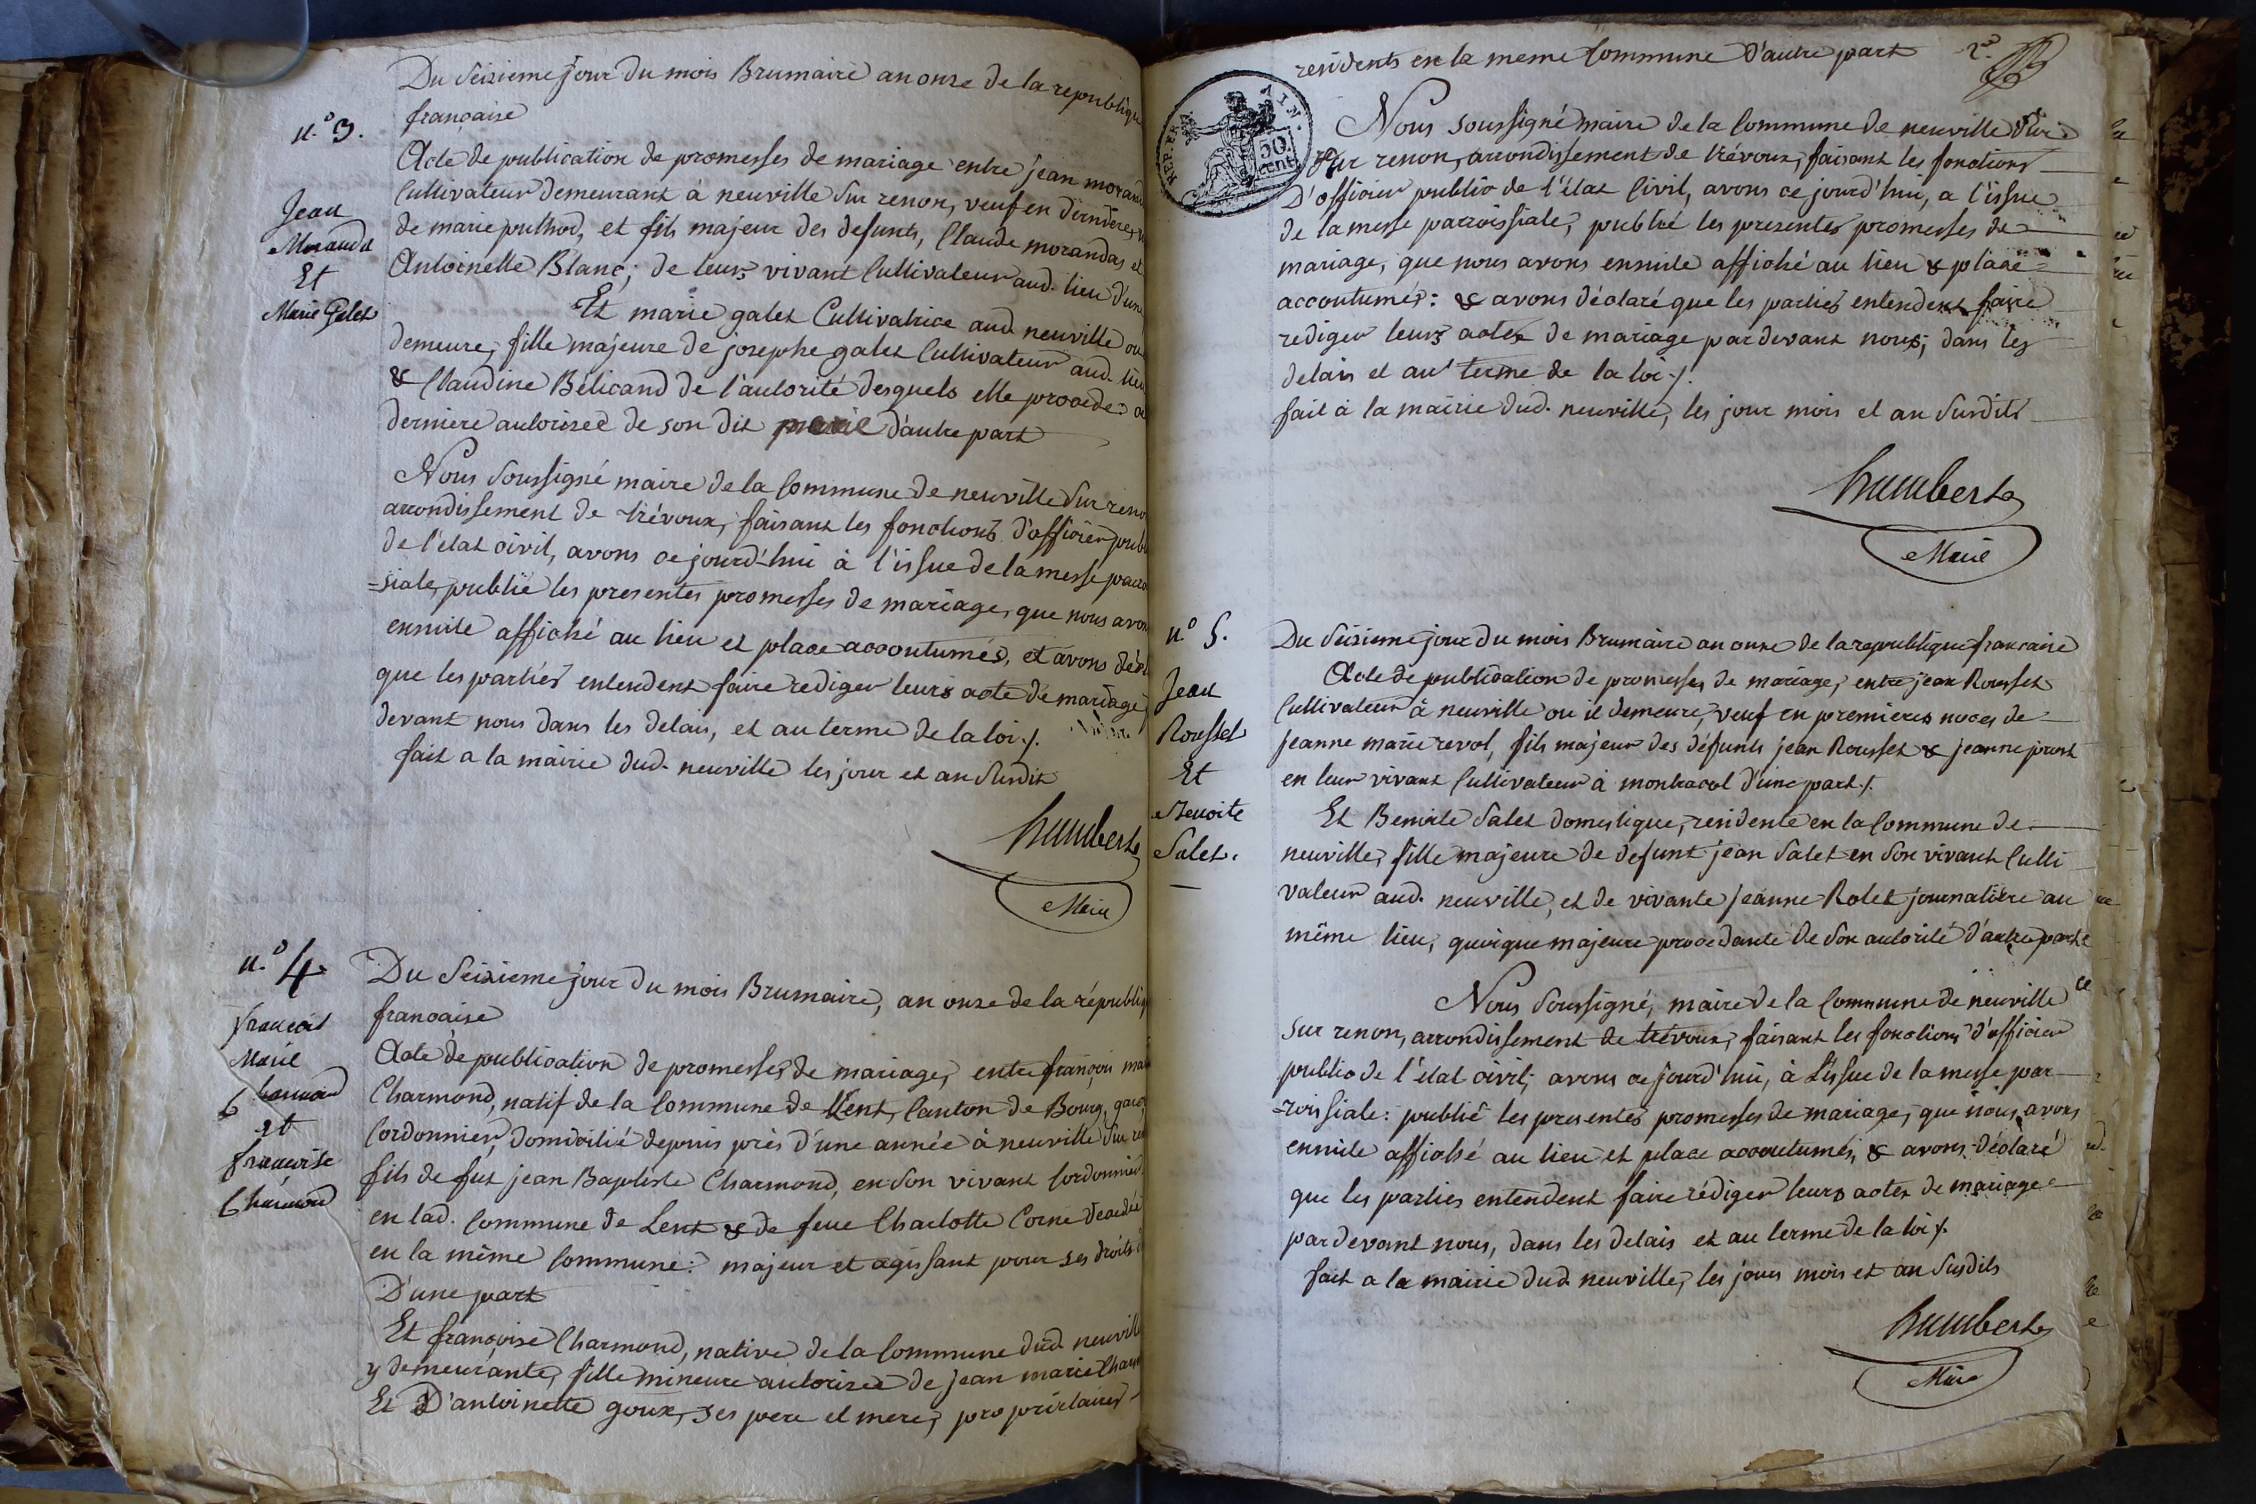 Du Seizieme jour du mois Brumaire an onze de la republique
française
n.° 3.
Acte de publication de promesses de mariage entre jean morand
Cultivateur demeurant à neuville Sur renon, veuf en dernieres
de marie puthod, et fils majeur des defunts, Claude morandas et
Antoinette Blanc; de leurs vivant Cultivateur aud. lieu d'une
Jean
Morandas
Et
Marie Gelet
Et marie galet Cultivatrice aud. neuville ou
demeure, fille majeure de josephe galet Cultivateur aud. lieu
& Claudine Bélicand de l'autorité desquels elle procede
derniere autorisée de son dit d'autre part
Nous Soussigné maire de la Commune de neuville Sur reno
arrondissement de trévoux, faisant les fonctions d'officier publi
de l'état civil, avons ce jourd'hui à l'issue de la messe paroi
=siale, publié les presentes promesses de mariage, que nous avon
ensuite affiché au lieu et place accoutumés, et avons décl
que les parties entendent faire rediger leurs acte de mariage
devant nous dans les delais, et au terme de la loi ./.
fait a la mairie dud. neuville les jour et an Susdit
humbert
Maire
n.° 4
Du Seizieme jour du mois Brumaire, an onze de la républiq
francaise
françois
Marie
Charmond
et
françoise
Charmond
Acte de publication de promesses de mariage, entre françois ma
Charmond, natif de la Commune de Lent, Canton de Bourg, gar
Cordonnier, domicilié depuis près d'une année à neuville Sur re
fils de fut jean Baptiste Charmond, en Son vivant Cordonnier
en lad. Commune de Lent & de feue Charlotte Corne décedée
en la même Commune: majeur et agissant pour ses droits
D'une part
Et françoise Charmond, native de la Commune dud. neuville
y demeurante, fille mineure autorisée de jean marie Charm
Et D'antoinette goux, ses pere et mere, proprietaires
residents en la meme Commune D'autre part
2.e
REP. FRA.
AIN.
50
cent
Nous soussigné maire de la Commune de neuville
Sur renon, arrondissement de trévoux, faisant les fonctions
D'officier public de l'état Civil, avons ce jourd'hui, a l'issue
de la messe parroissiale, publié les presentes promesses de
mariage, que nous avons ensuite affiché au lieu & place
accoutumés: & avons déclaré que les parties entendent faire
rediger leurs actes de mariage pardevant nous, dans les
delais et au terme de la loi ./.
fait à la mairie dud. neuville, les jour mois et an Susdits
humbert
Maire
n.° 5.
Du Seizieme jour du mois Brumaire an onze de la republique francaise
Jean
Rousset
Et
Benoite
Salet.
Acte de publication de promesses de mariage, entre jean Rousset
Cultivateur à neuville ou il demeure, veuf en premieres noces de
jeanne marie revol, fils majeur des défunts jean Rousset & jeanne prost
en leur vivant Cultivateur à montracol d'une part ./.
Et Benoite Salet domestique, residente en la Commune de
neuville, fille majeure de defunt jean Salet en Son vivant Culti
vateur aud. neuville, et de vivante jeanne Rolet journaliere au
même lieu, quoique majeure procedante de Son autorité d'autre part
Nous Soussigné, maire de la Commune de neuville
Sur renon, arrondissement de trévoux, faisant les fonctions d'officier
public de l'état civil, avons ce jourd'hui, à L'issue de la messe par
=roissiale: publié les presentes promesses de mariage, que nous avons
ensuite affiché au lieu et place accoutumés, & avons déclaré
que les parties entendent faire rédiger leurs actes de mariage
pardevant nous, dans les delais et au terme de la loi ./.
fait a la mairie dud. neuville, les jours mois et an Susdits
humbert
Maire